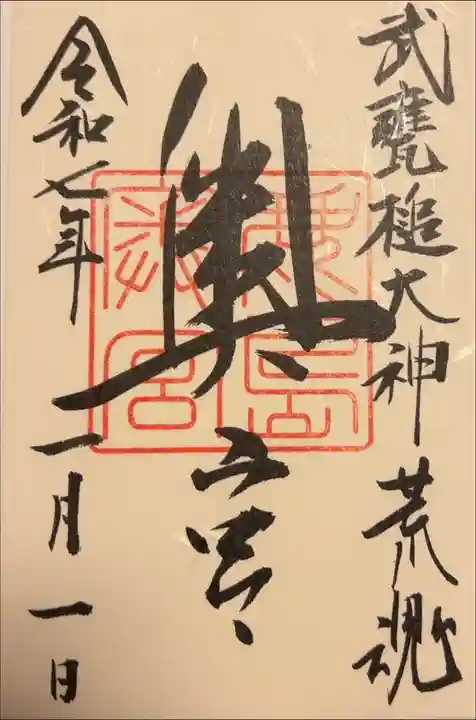 武甕槌大神荒魂
奥宮
令和七年一月一日
鹿島奥宮